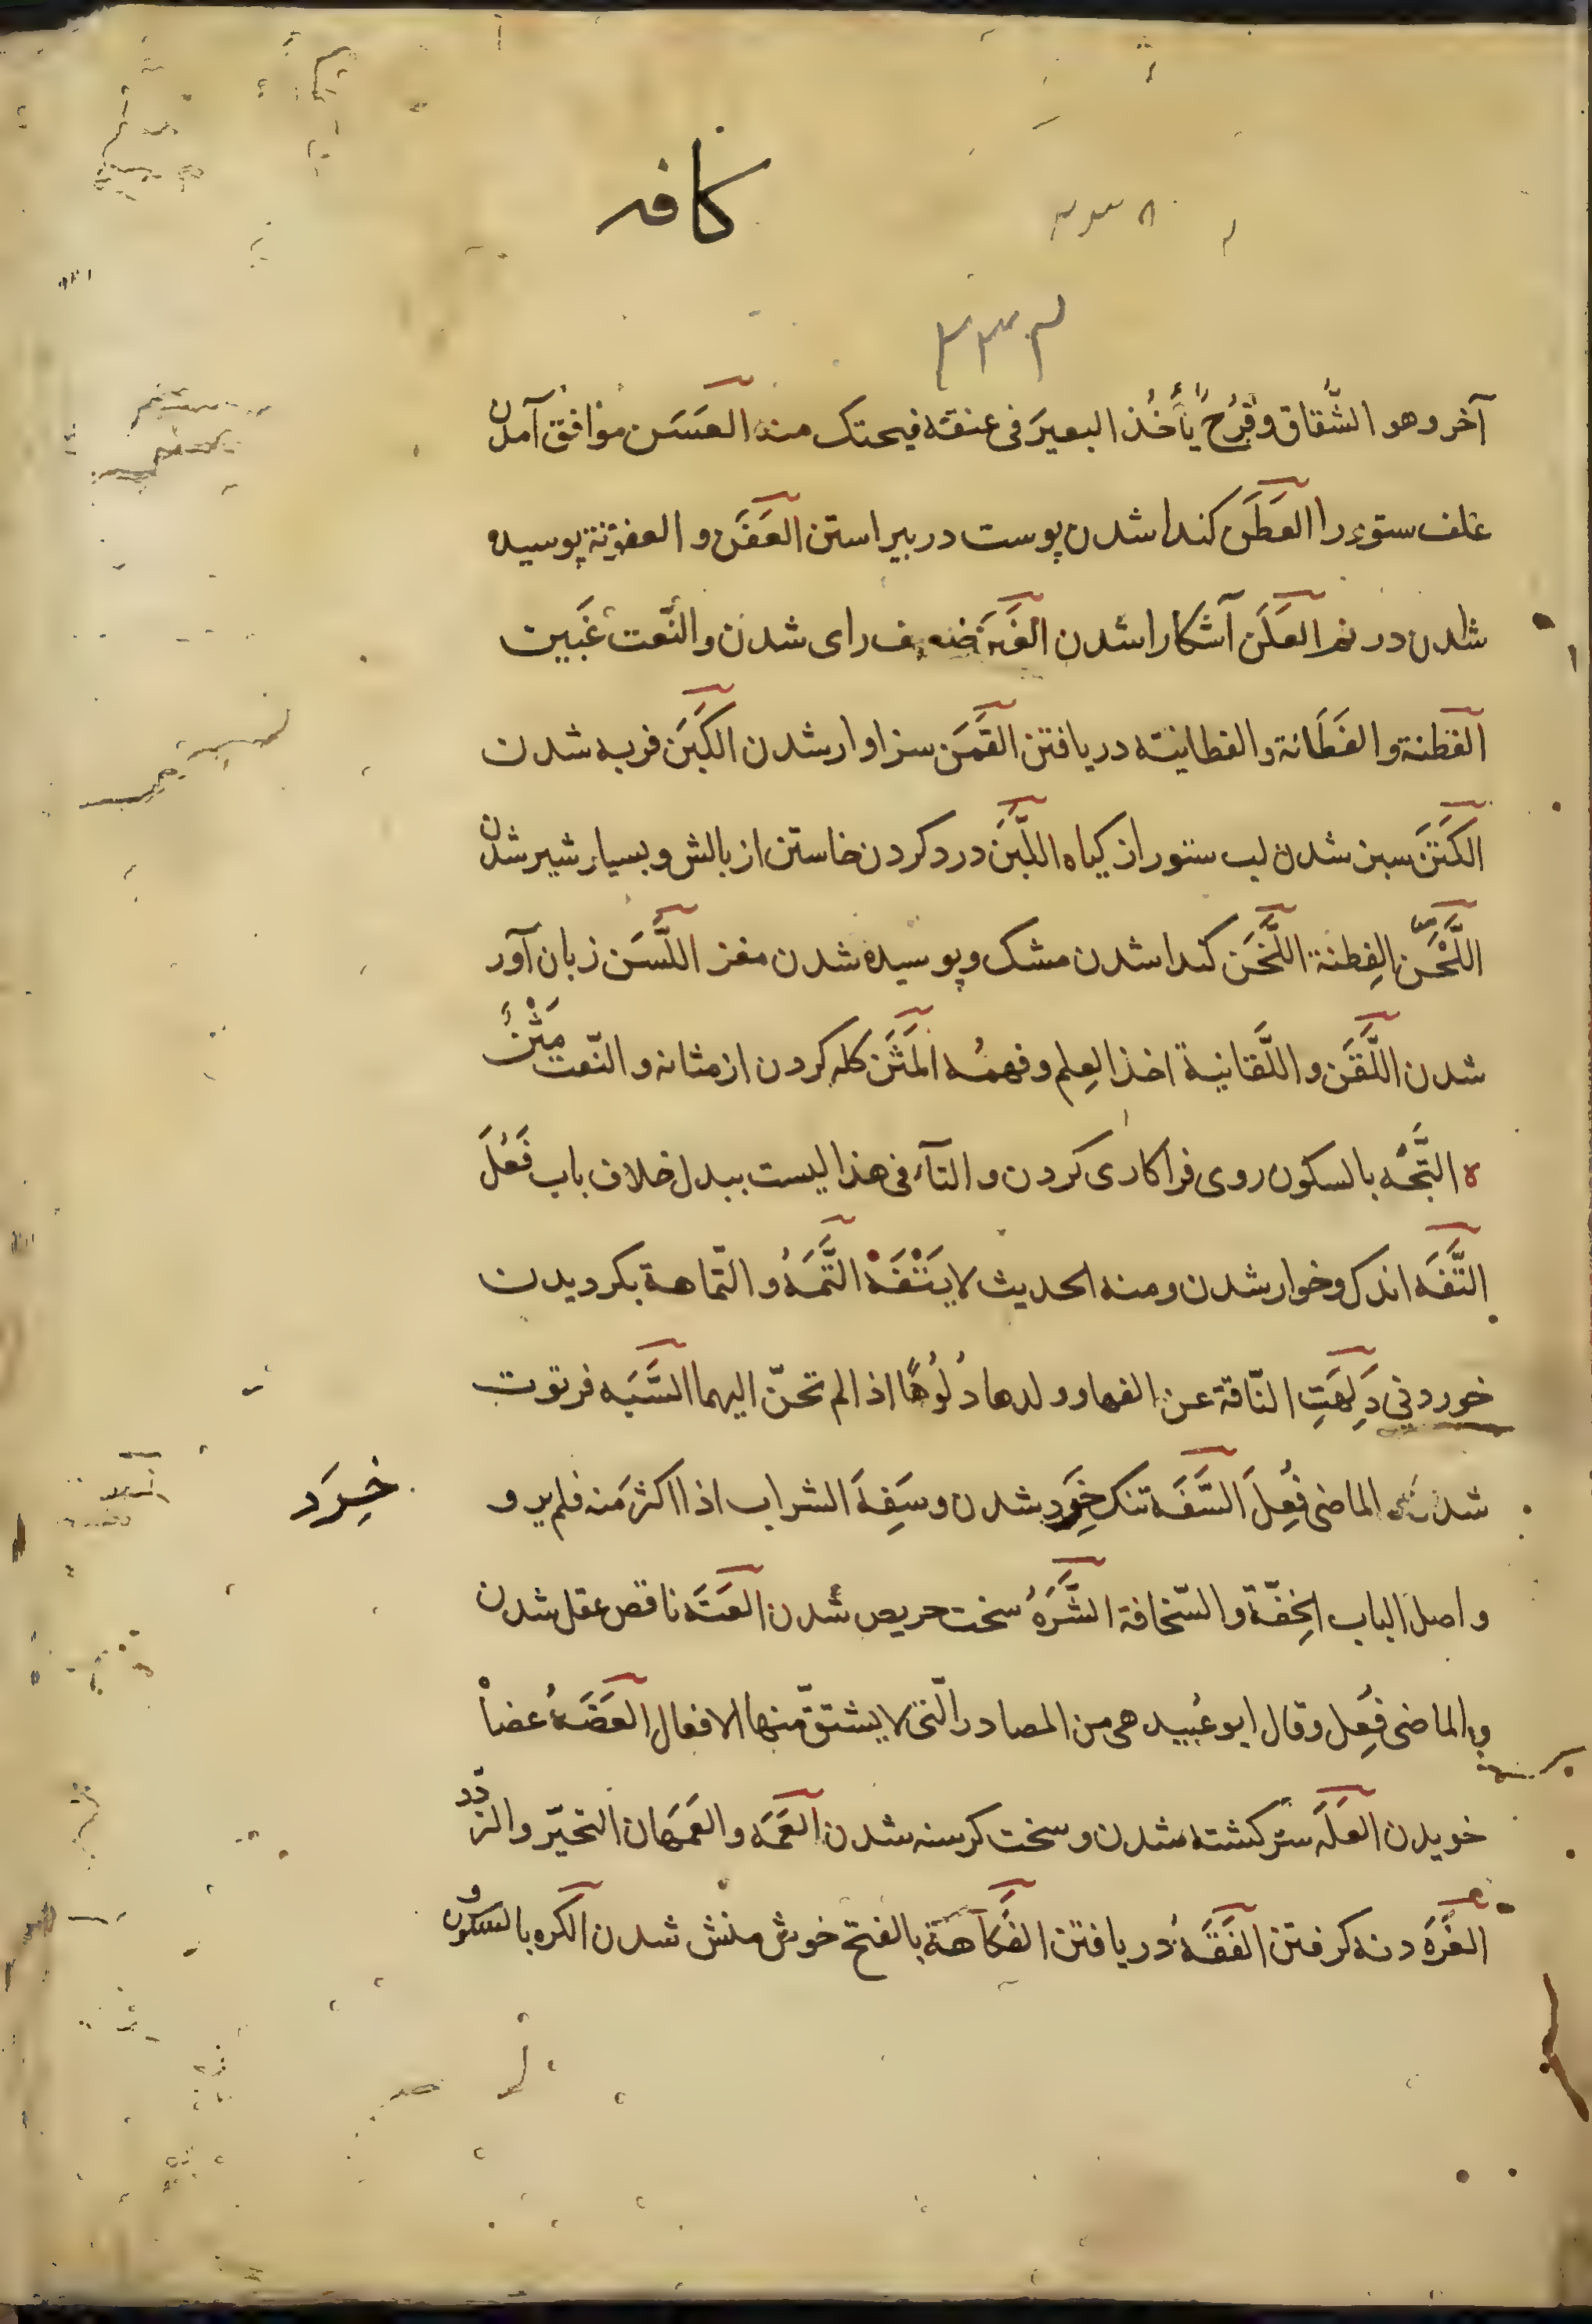 کافه
۳۳۲
آخر وهو الشُّقاق وقَرْحٌ يأخُذ البعيرَ فى عنقه فيحتك منه العَسَن موافق آمدن
علف ستور را العَطَن کندا شدن پوست در پیراستن العَفَن و العفونة پوسیده
شدن در نم العَلَن آشکارا شدن الغَبَن ضعیف رای شدن والنّعت غَبین
الفطنة و الفَطَانة و الفطانیته دریافتن القَمَن سزاوار شدن الکَبَن فربه شدن
الکَتَن سبز شدن لب ستور از کیاه اللَّبَن درد کردن خاستن از بالش و بسیار شیر شدن
اللَّحَن الفِطنة اللَّخَن کندا شدن مشک و پوسیده شدن مغز اللَّسَن زبان آور
شدن اللَّقَن و اللَّقانیة اخذ العِلم و فهمُه المَثَن کله کردن از مثانه و النّعت مَثْنٌ
ه التَّجْه بالسکون روی فرا کاری کردن و التآء فى هذا لیست ببدل خلاف باب فَعُلَ
التَّفَه اندک و خوار شدن و منه الحدیث لا یَتْفَهْ التَّمَهُ و التّماهة بکردیدن
خوردنی دَلِهَتِ النّاقة عن الفها و ولدها دُلُوهًا اذا لم تحنّ الیهما السَّبَه فرتوت
شدن الماضى فُعِلَ السَّفَه تنک خِرَد شدن و سَفِهَ الشراب اذا اکثر منه فلم یرو
خِرَد
و اصل الباب الخِفّة و السّخافة الشَّرَهُ سخت حریص شدن العَتَه ناقص عقل شدن
و الماضى فُعِل و قال ابو عُبید هى من المصادر الّتى لا یشتقّ منها الافعال العَضَهُ عضاْ
خویدن العَلَه سرکشته شدن و سخت کرسنه شدن العَمَه و العَمَهان التحیّر و التردّد
الفَرَه دنه کرفتن الفَقَهُ دریافتن الفَکاهة بالفتح خوش منش شدن الکره بالسکون و